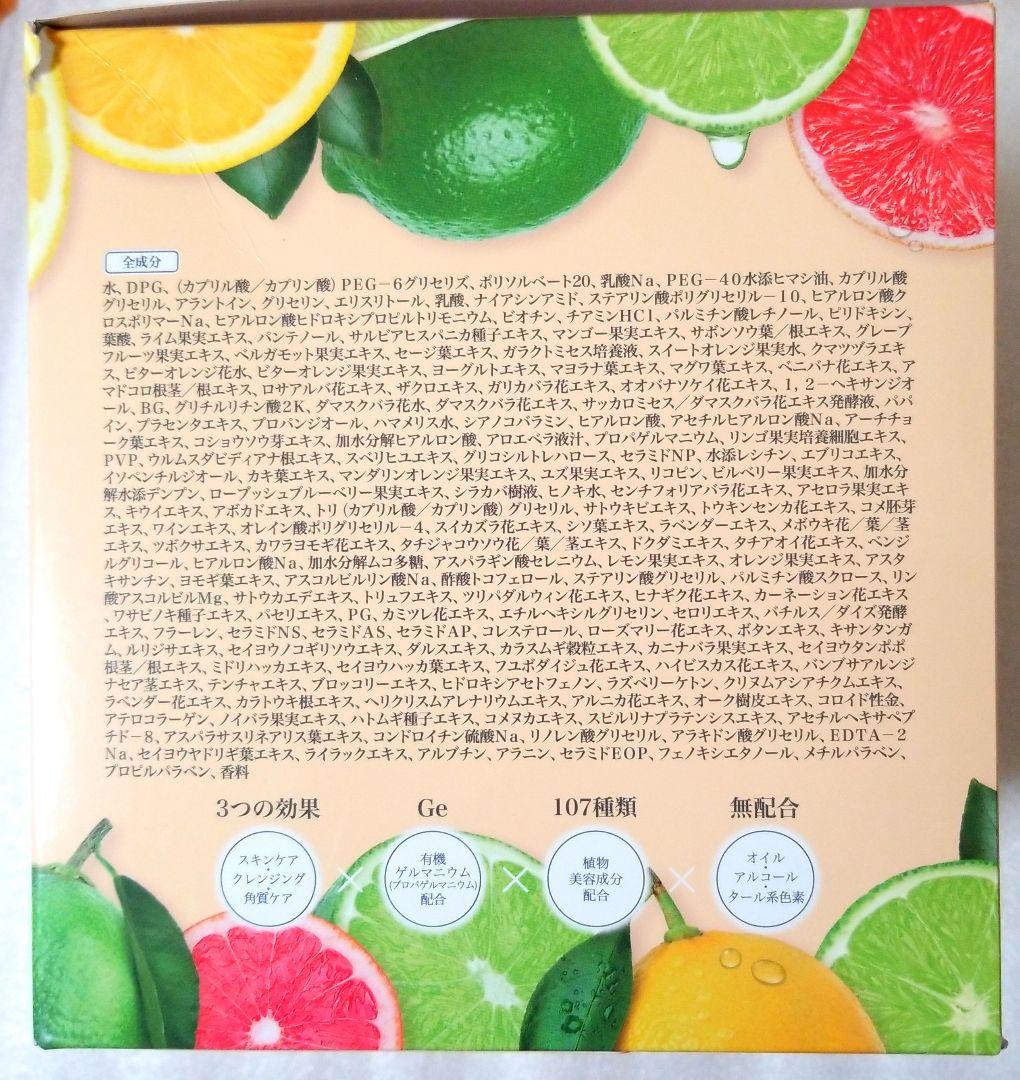 全成分
水、DPG、(カプリル酸／カプリン酸)PEG－6グリセリズ、ポリソルベート20、乳酸Na、PEG－40水添ヒマシ油、カプリル酸
グリセリル、アラントイン、グリセリン、エリスリトール、乳酸、ナイアシンアミド、ステアリン酸ポリグリセリル－10、ヒアルロン酸ク
ロスポリマーNa、ヒアルロン酸ヒドロキシプロピルトリモニウム、ビオチン、チアミンHCl、パルミチン酸レチノール、ピリドキシン、
葉酸、ライム果実エキス、パンテノール、サルビアヒスパニカ種子エキス、マンゴー果実エキス、サボンソウ葉／根エキス、グレープ
フルーツ果実エキス、ベルガモット果実エキス、セージ葉エキス、ガラクトミセス培養液、スイートオレンジ果実水、クマツヅラエキ
ス、ビターオレンジ花水、ビターオレンジ果実エキス、ヨーグルトエキス、マヨラナ葉エキス、マグワ葉エキス、ベニバナ花エキス、ア
マドコロ根茎／根エキス、ロサアルバ花エキス、ザクロエキス、ガリカバラ花エキス、オオバナソケイ花エキス、1,2－ヘキサンジオ
ール、BG、グリチルリチン酸2K、ダマスクバラ花水、ダマスクバラ花エキス、サッカロミセス／ダマスクバラ花エキス発酵液、パパ
イン、プラセンタエキス、プロパンジオール、ハマメリス水、シアノコバラミン、ヒアルロン酸、アセチルヒアルロン酸Na、アーチチョ
ーク葉エキス、コショウソウ芽エキス、加水分解ヒアルロン酸、アロエベラ液汁、プロパゲルマニウム、リンゴ果実培養細胞エキス、
PVP、ウルムスダビディアナ根エキス、スベリヒユエキス、グリコシルトレハロース、セラミドNP、水添レシチン、エブリコエキス、
イソペンチルジオール、カキ葉エキス、マンダリンオレンジ果実エキス、ユズ果実エキス、リコピン、ビルベリー果実エキス、加水分
解水添デンプン、ローブッシュブルーベリー果実エキス、シラカバ樹液、ヒノキ水、センチフォリアバラ花エキス、アセロラ果実エキ
ス、キウイエキス、アボカドエキス、トリ(カプリル酸／カプリン酸)グリセリル、サトウキビエキス、トウキンセンカ花エキス、コメ胚芽
エキス、ワインエキス、オレイン酸ポリグリセリル－4、スイカズラ花エキス、シソ葉エキス、ラベンダーエキス、メボウキ花／葉／茎
エキス、ツボクサエキス、カワラヨモギ花エキス、タチジャコウソウ花／葉／茎エキス、ドクダミエキス、タチアオイ花エキス、ベンジ
ルグリコール、ヒアルロン酸Na、加水分解ムコ多糖、アスパラギン酸セレニウム、レモン果実エキス、オレンジ果実エキス、アスタ
キサンチン、ヨモギ葉エキス、アスコルビルリン酸Na、酢酸トコフェロール、ステアリン酸グリセリル、パルミチン酸スクロース、リン
酸アスコルビルMg、サトウカエデエキス、トリュフエキス、ツリパダルウィン花エキス、ヒナギク花エキス、カーネーション花エキス
、ワサビノキ種子エキス、パセリエキス、PG、カミツレ花エキス、エチルヘキシルグリセリン、セロリエキス、バチルス／ダイズ発酵
エキス、フラーレン、セラミドNS、セラミドAS、セラミドAP、コレステロール、ローズマリー花エキス、ボタンエキス、キサンタンガ
ム、ルリジサエキス、セイヨウノコギリソウエキス、ダルスエキス、カラスムギ穀粒エキス、カニナバラ果実エキス、セイヨウタンポポ
根茎／根エキス、ミドリハッカエキス、セイヨウハッカ葉エキス、フユボダイジュ花エキス、ハイビスカス花エキス、バンブサアルンジ
ナセア茎エキス、テンチャエキス、ブロッコリーエキス、ヒドロキシアセトフェノン、ラズベリーケトン、クリヌムアシアチクムエキス、
ラベンダー花エキス、カラトウキ根エキス、ヘリクリスムアレナリウムエキス、アルニカ花エキス、オーク樹皮エキス、コロイド性金、
アテロコラーゲン、ノイバラ果実エキス、ハトムギ種子エキス、コメヌカエキス、スピルリナプラテンシスエキス、アセチルヘキサペプ
チド－8、アスパラサスリネアリス葉エキス、コンドロイチン硫酸Na、リノレン酸グリセリル、アラキドン酸グリセリル、EDTA－2
Na、セイヨウヤドリギ葉エキス、ライラックエキス、アルブチン、アラニン、セラミドEOP、フェノキシエタノール、メチルパラベン、
プロピルパラベン、香料
3つの効果 Ge 107種類 無配合
スキンケア
・
クレンジング
・
角質ケア
×
有機
ゲルマニウム
(プロパゲルマニウム)
配合
×
植物
美容成分
配合
×
オイル
・
アルコール
・
タール系色素